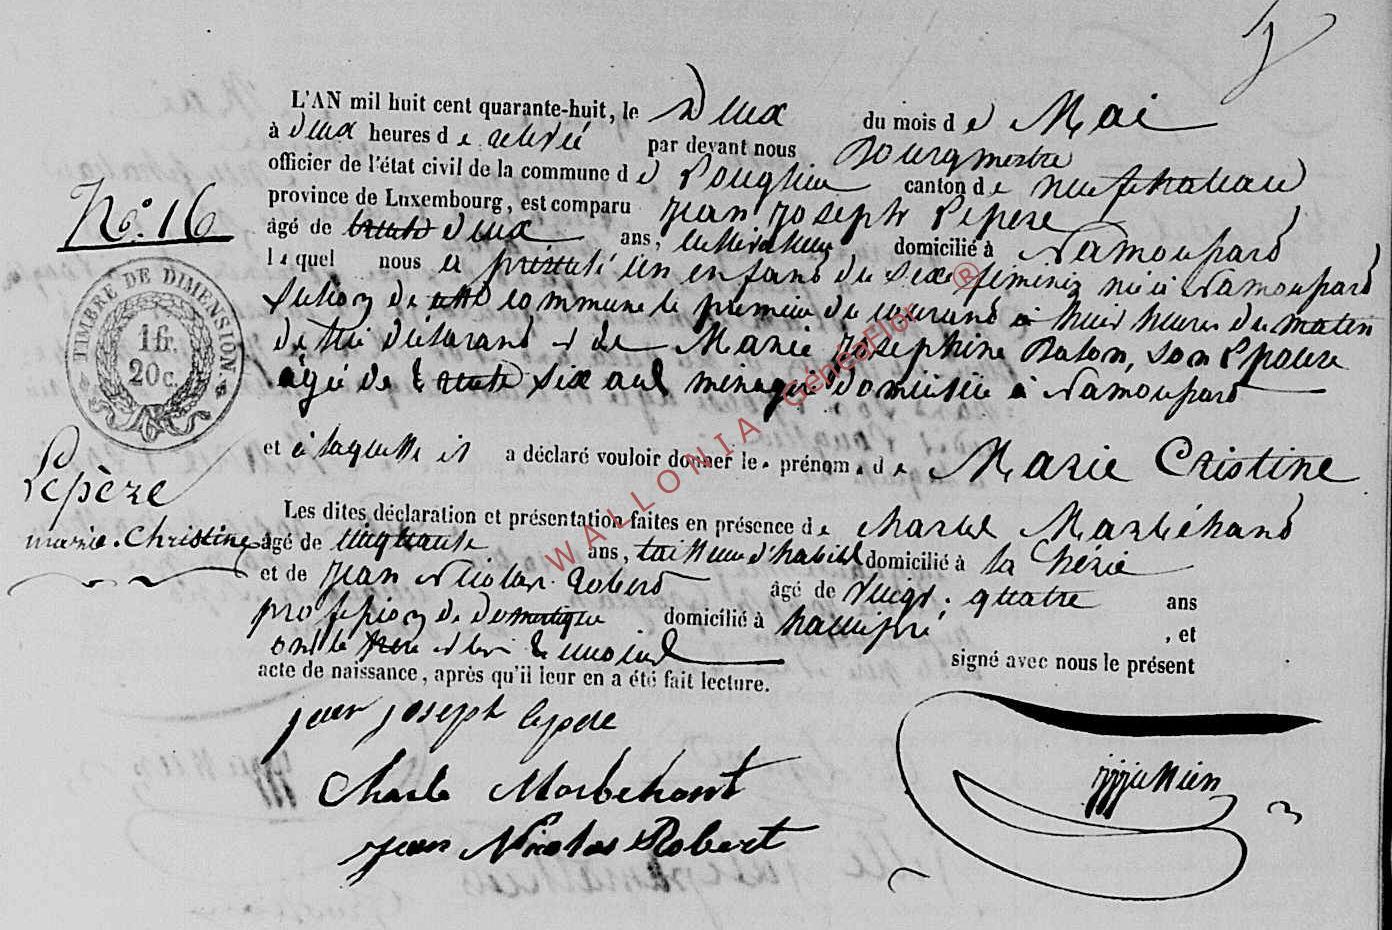 L'AN mil huit cent quarante-huit, le Deux du mois de Mai
à deux heures de relevé par devant nous Bourgmestre
officier de l'état civil de la commune de canton de neufchateau
No. 16
province de Luxembourg, est comparu Jean Joseph Lepere
âgé de trente deux ans, cultivateur domicilié à Namoupard
lequel nous a présenté un enfand du sexe feminin née à Namoupard
section de cette commune le premier du courand à huit heures du maten
de lui déclarand et de Marie Josephine Balon, son Epouse
âgée de trente six ans ménagère domiciliée à Namoupard
TIMBRE DE DIMENSION
1 fr.
20 c.
et à laquelle il a déclaré vouloir donner les prénoms de Marie Cristine
Lepère
marie-Christine
Les dites déclaration et présentation faites en présence de Charles Marbéhand
âgé de cinquante ans, tailleur d'habits domicilié à la
et de Jean Nicolas Robert âgé de vingt-quatre ans
profession de domestique domicilié à , et
ont le père et les témoins signé avec nous le présent
acte de naissance, après qu'il leur en a été fait lecture.
jean joseph lepere
Charle Marbehant
jean Nicolas Robert
WALLONIA GénéaFlor ®